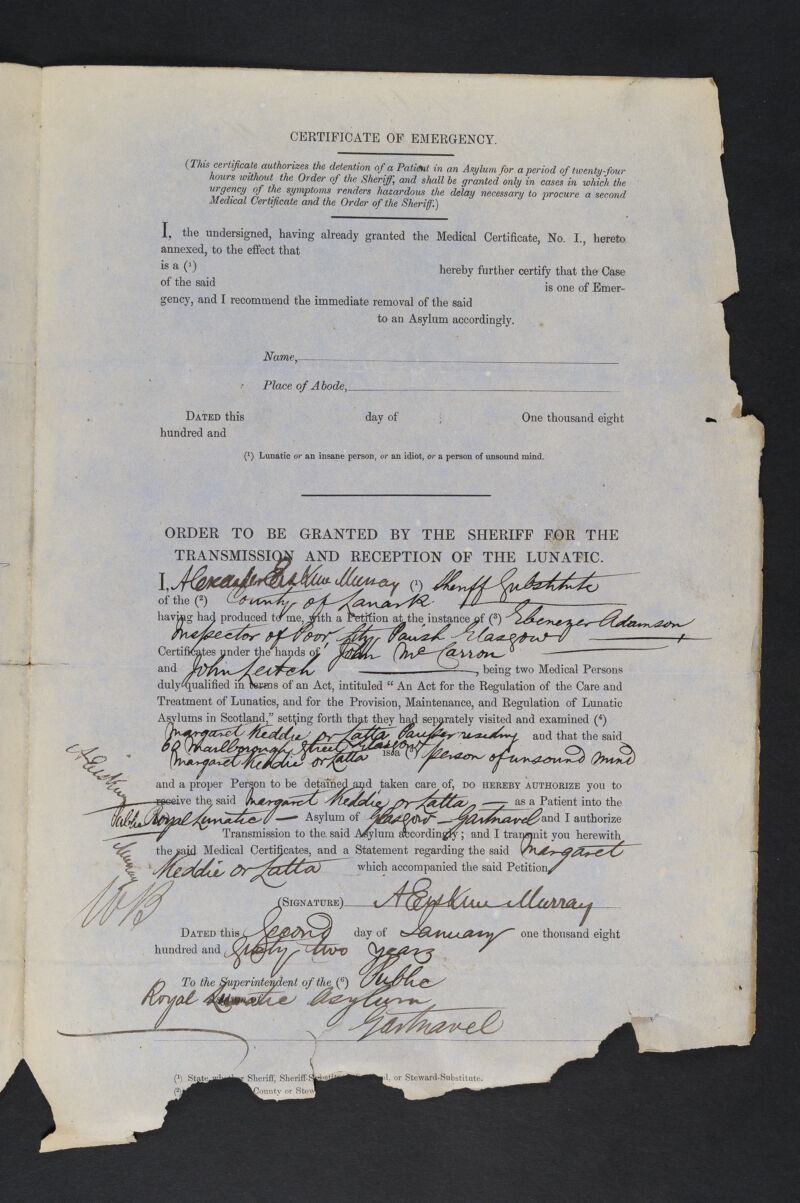 CERTIFICATE OF EMERGENCY.
(This certificate authorizes the detention of a Patient in an Asylum for a period of twenty-four
hours without the Order of the Sheriff, and shall be granted only in cases in which the
urgency of the symptoms renders hazardous the delay necessary to procure a second
Medical Certificate and the Order of the Sheriff.)
I, the undersigned, having already granted the Medical Certificate, No. I., hereto
annexed, to the effect that
is a (¹) hereby further certify that the Case
of the said is one of Emer-
gency, and I recommend the immediate removal of the said
to an Asylum accordingly.
Name,
Place of Abode,
DATED this day of One thousand eight
hundred and
(¹) Lunatic or an insane person, or an idiot, or a person of unsound mind.
ORDER TO BE GRANTED BY THE SHERIFF FOR THE
TRANSMISSION AND RECEPTION OF THE LUNATIC.
I, Alexander Erskine Murray (¹) Sheriff Substitute
of the (²) County of Lanark
having had produced to me, with a Petition at the instance of (³) Ebenezer Adamson
Inspector of Poor, City Parish Glasgow
Certificates under the hands of John McCarron
and John Leitch, being two Medical Persons
duly qualified in terms of an Act, intituled "An Act for the Regulation of the Care and
Treatment of Lunatics, and for the Provision, Maintenance, and Regulation of Lunatic
Asylums in Scotland," setting forth that they had separately visited and examined (⁴)
Margaret Keddie or Latta Pauper residing and that the said
60 Marlborough Street Glasgow
Margaret Keddie or Latta is a (⁵) person of unsound mind
and a proper Person to be detained and taken care of, DO HEREBY AUTHORIZE you to
receive the said Margaret Keddie or Latta — as a Patient into the
Public Royal Lunatic — Asylum of Glasgow – Gartnavel and I authorize
Transmission to the said Asylum accordingly; and I transmit you herewith
the said Medical Certificates, and a Statement regarding the said Margaret
Keddie or Latta which accompanied the said Petition.
A Erskine
Murray
(SIGNATURE) A Erskine Murray
DATED this Second day of January one thousand eight
hundred and Sixty two years
To the Superintendent of the (⁶) Public
Royal Lunatic Asylum
Gartnavel
(¹) State whether Sheriff, Sheriff-Substitute, or Steward-Substitute.
(²) County or Stew